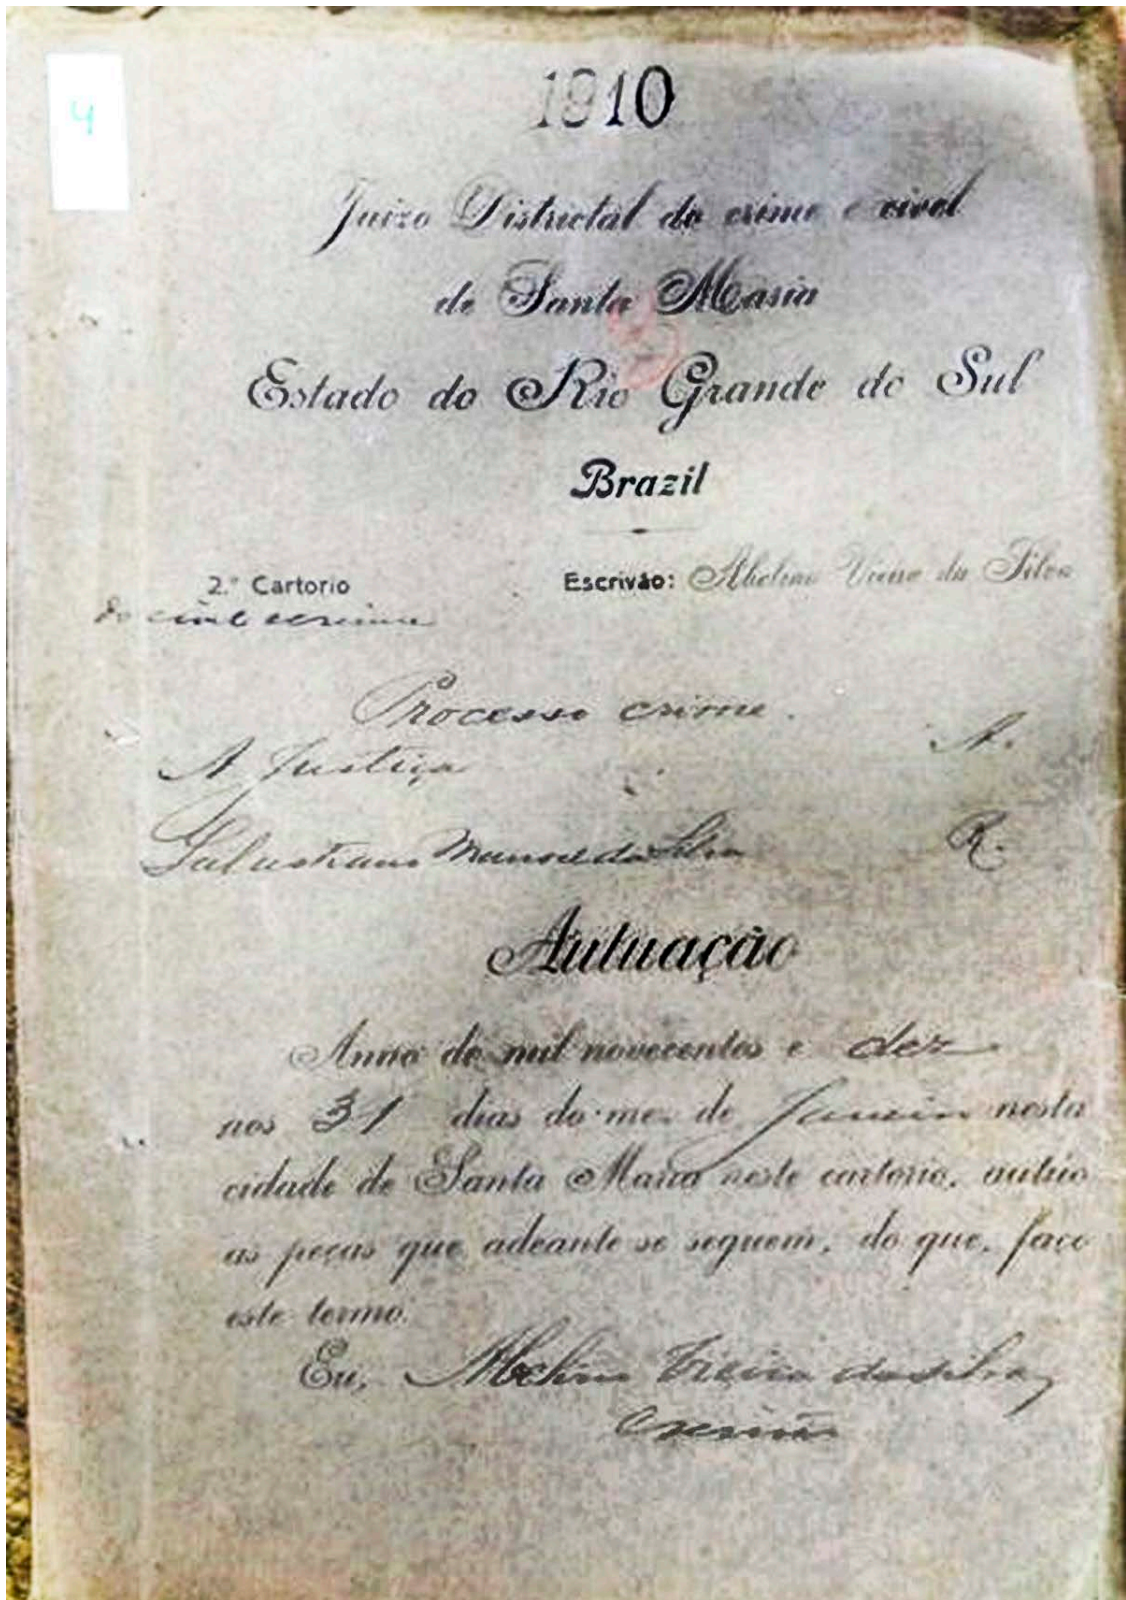 4
1910
Juizo Districtal do crime e civel
de Santa Maria
Estado do Rio Grande do Sul
Brazil
2.º Cartorio
Escrivão: Abelino Vieira da Silva
do civil e crime
Processo crime.
A Justiça A.
Salustiano Manoel da Silva R.
Autuação
Anno de mil novecentos e dez
aos 31 dias do mez de Janeiro nesta
cidade de Santa Maria neste cartorio, autúo
as peças que adeante se seguem, do que, faço
este termo.
Eu, Abelino Vieira da Silva,
escrivão